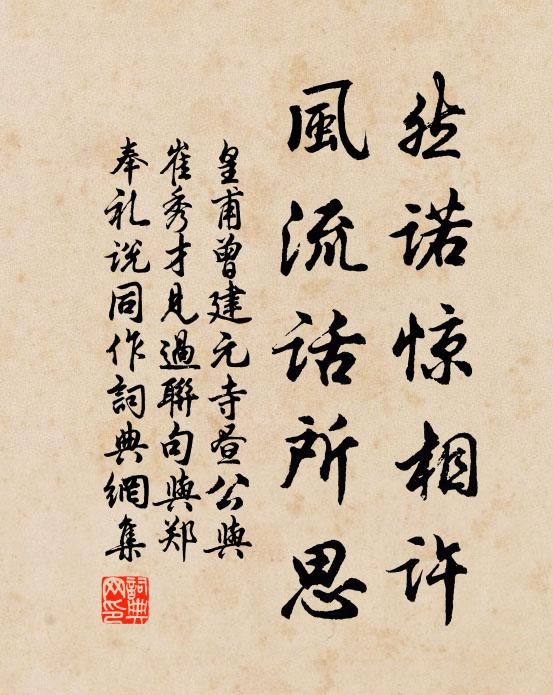 然诺惊相许
風流話所思
皇甫曾建元寺昼公與
崔秀才見過聯句與郑
奉礼说同作詞典網集
詞典